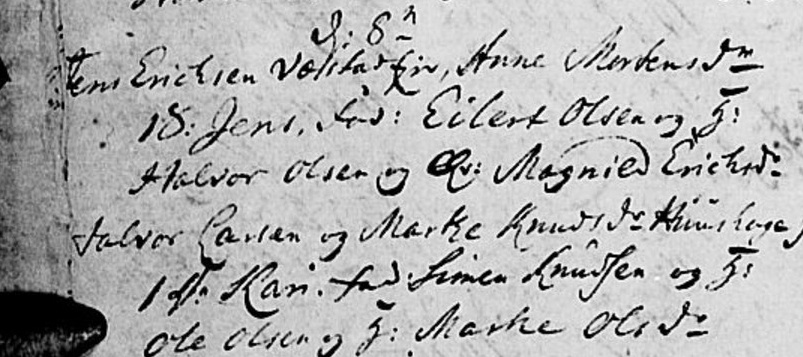 D. 8n
Jens Erichsen Vælstad Anne Mortensdr
1 S: Jens, Fad: Eilert Olsen og H:
Halvor Olsen og Qv: Magnild Erichsdr
Halvor Larsen og Marthe Knudsdr Huushage
1 D: Kari. Fad: Simen Knudsen og H:
Ole Olsen og H: Marthe Olsdr